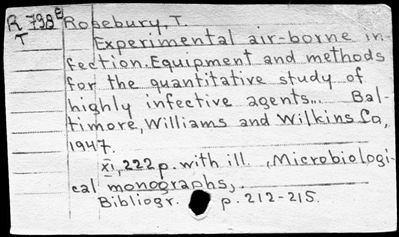 R 798 e Rosebury, T.
T Experimental air-borne in-
fection. Equipment and methods
for the quantitative study of
highly infective agents... Bal-
timore, Williams and Wilkins Co,
1947.
XI, 222 p. with ill. (Microbiologi-
cal monographs).
Bibliogr. p. 212-215.